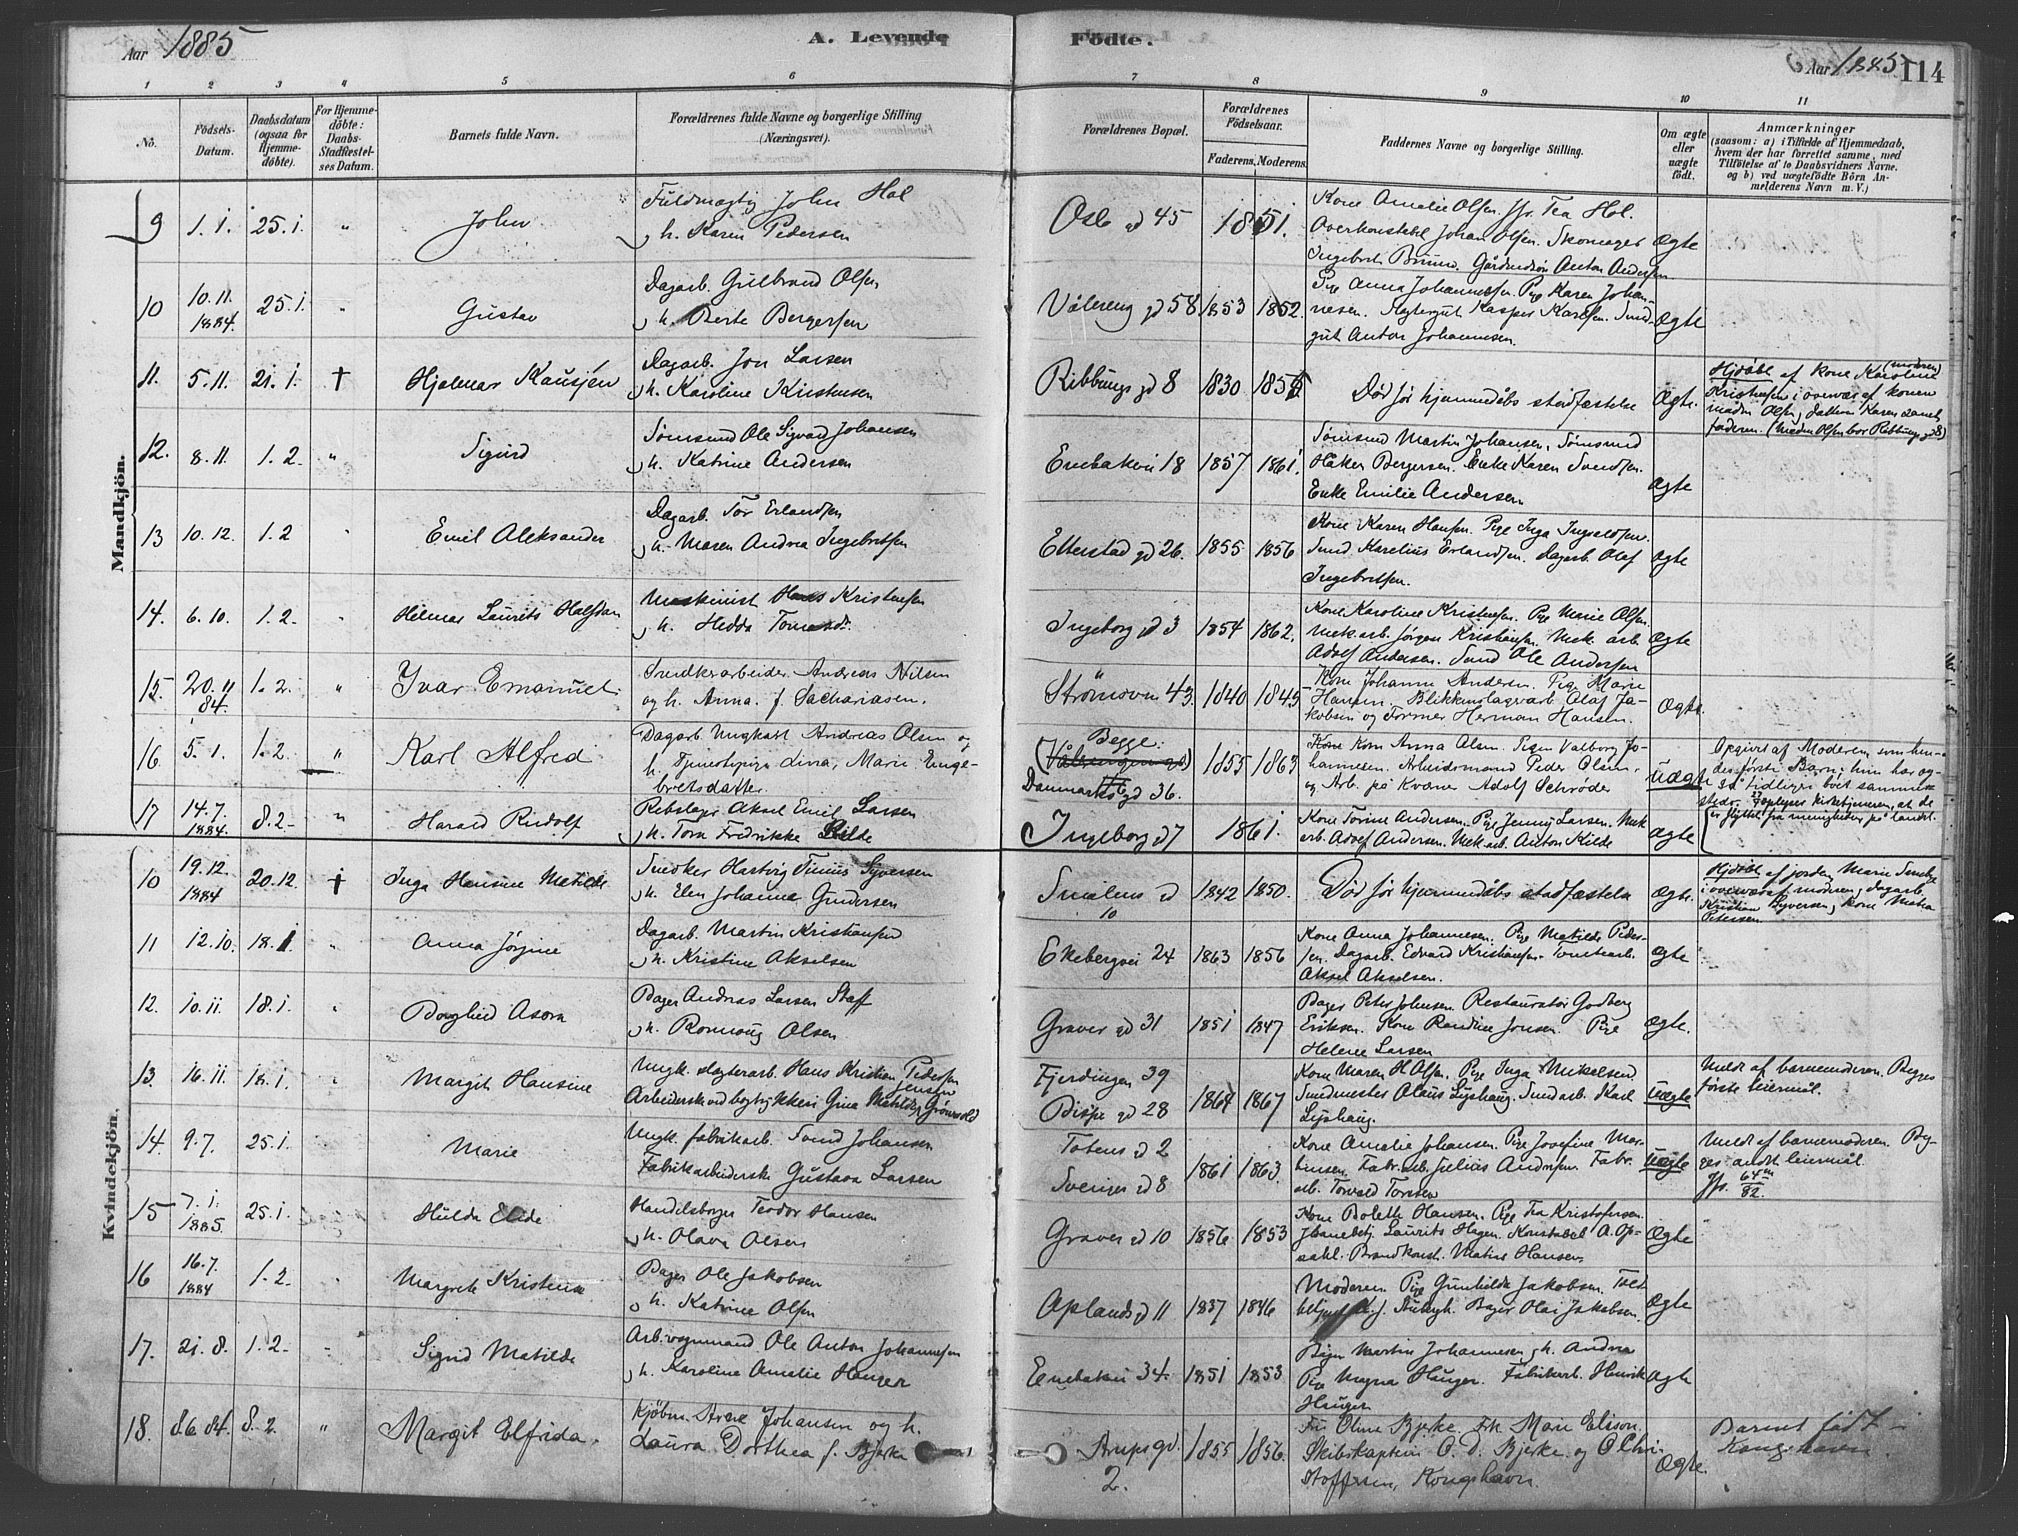 Aar 1885
A. Levende
Födte.
Aar 1885
114
1 2 3 " 5 6 7 8 9 10 11
No.
Födsels-Datum.
Daabsdatum (ogsaa for Hjemme-döbte).
For Hjemme-döbte: Daabs-Stadfæstel-ses Datum.
Barnets fulde Navn.
Forældrenes fulde Navne og borgerlige Stilling (Næringsvei).
Forældrenes Bopæl.
Forældrenes Födselsaar.
Faderens. Moderens.
Faddernes Navne og borgerlige Stilling.
Om ægte eller uægte födt.
Anmærkninger
(saasom: a) i Tilfælde af Hjemmedaab, hvem der har forrettet samme, med Tilföielse af to Daabsvidners Navne. og b) ved uægtefödte Börn An-melderens Navn m. V.)
Mandkjön.
9 1.1. 25.1. " John
Fuldmægtig John Hol
h. Karen Pedersen
Oslo gd 45 1851.
Kone Amalie Olsen. Jfr. Tea Hol.
Overkonstabel Johan Olsen. Skomager
Ingebret Bruun. Gårdmdsøn Anton Andersen
Ægte
10 10.11. 1884. 25.1. " Gustav
Dagarb. Gulbrand Olsen
h. Berte Bergersen
Vålereng gd 58 1853 1852.
Pge Anna Johannessen. Pge Karen Johan-
nesen. Slagtergut Kasper Karlsen. Smed-
gut Anton Johannesen.
Ægte
11. 5.11. 21.1. † Hjalmar Kausjen
Dagarb. Jon Larsen
h. Karoline Kristensen
Ribbungs gd 8 1830
Død før hjemmedåbs stadfæstelse
Ægte.
Hjdøbt af kone Karoline (moderen)
Kristensen i overvær af konen
Olsen, datteren Karen samt
faderen. (Madm Olsen bor Ribbungs gd 8)
12. 8.11. 1.2. " Sigurd
Sømsmd Ole Sigvard Johansen
h. Katrine Andersen
Enebakvei 18 1857 1861.
Sømsmd Martin Johansen, Sømsmd
Håken Bergersen. Enke Karen Svendsen.
Enke Emilie Andersen
Ægte
13 10.12. 1.2 " Emil Aleksander
Dagarb. Tor Erlandsen
h. Maren Andrea Ingebretsen
Etterstad gd 26. 1855. 1856
Kone Karen Hansen. Pge Inga Ingvaldsen.
Smd. Karelius Erlandsen. Dagarb. Olaf
Ingebretsen.
Ægte
14. 6.10. 1.2. " Helmer Laurits Halfdan
Maskinist Hans Kristensen
h. Hedda Tomasdt.
Ingeborg gd 3 1854 1862.
Kone Karoline Kristensen. Pge Marie Olsen.
Mek. arb. Jørgen Kristensen. Mek. arb
Adolf Andersen. Smd Ole Andersen
Ægte
15. 20.11 84. 1.2. " Ivar Emanuel.
Snedkerarbeider Andreas Nilsen
og h. Anna f. Sachariasen.
Strömsvn 43. 1840 1845
Kone Johanne Andersen. Pge Marie
Hansen. Blikkenslagerarb. Olaf Ja-
kobsen og Former Herman Hansen.
Ægte.
16 5.1. 1.2. " Karl Alfred
Dagarb Ungkarl Andreas Olsen og
h. Tjenestepige Lina Marie Enge-
bretsdatter
Begge:
(Vålerengen gd)
Danmarks gd 36. 1855 1863
Kone Anna Olsen. Pigen Valborg Jo-
hannesen. Arbeidsmand Peder Olsen.
og Arb. på Kværn Adolf Schrøder
Uægte
Opgivet af Moderen, som hen-
des første Barn; hun har og-
så tidligere boet samme-
steds. Oplyses kirketjeneren, at de
er flyttet fra menigheden på landet.
17 14.7. 1884. 8.2. " Harald Rudolf
Rebslager Aksel Emil Larsen
h. Tora Fredrikke Kilde
Ingeborg gd 7 1861.
Kone Torine Andersen. Pge Jenny Larsen. Mek
arb. Adolf Andersen. Mek. arb. Anton Kilde
Ægte
Kvindekjön.
10 19.12. 1884 20.12. † Inga Hansine Matilde
Snedker Hartvig Tinius Syversen
h. Elen Johanne Gundersen
Smålens gd 10 1842 1850.
Død før hjemmedåbs stadfæstelse
Ægte.
Hjdøbt af jordm. Marie
i overvær af moderen, dagarb.
Kristian Syversen, kone
Petersen
11 12.10. 18.1 " Anna Jørgine
Dagarb. Martin Kristiansen
h. Kristine Akselsen
Ekebergvei 24 1863 1856
Kone Anna Johannesen. Pge Matilde Peder-
sen. Dagarb. Edvard Kristiansen. Tomtearb.
Aksel Akselsen.
Ægte
12. 10.11. 18.1. " Daglind Asora
Bager Andreas Larsen Staff
h. Romoug Olsen
Graver gd 31 1851 1847
Bager Peter Johnsen. Restauratør Godberg
Eriksen. Kone Randine Jonsen. Pige
Helene Larsen
Ægte.
13. 16.11. 18.1. " Margit Hansine
Ungk. slagterarb. Hans Kristian Pedersen
Jensen
Arbeiderske ved bogtrykkeri Gina Matilde Grønvold
Fjerdingen 39
Bispe gd 28 1864 1867
Kone Maren H Olsen. Pge Inga Mikelsen.
Smedmester Olaus Lyshaug. Smd arb. Karl
Lyshaug.
Uægte
Meldt af barnemoderen. Begges
første leiermål.
14. 9.7. 25.1. Marie
Ungk. fabrikarb. Svend Johansen
Fabrikarbeiderske Gustava Larsen
Totens gd 2
Sveriges gd 8 1861 1863.
Kone Amalie Johansen. Pge Josefine Mar-
tinsen. Fabr. arb. Julius Andersen. Fabr.
arb. Torvald Torsen
Uægte
Meldt af barnemoderen. Beg-
ges andet leiermål.
Jfr. 64 m/82.
15 7.1. 1885. 25.1. Hulda Elide
Handelsborger Teodor Hansen
h. Olava Olsen
Graver gd 10 1856 1853
Kone Bolette Hansen. Pge Tea Kristofersen.
Jbanebetj. Laurits Hagen. Konstabel A. Op-
sahl. Brandkonst. Martin Hansen
Ægte
16 16.7. 1884 1.2. " Margrete Kristense
Bager Ole Jakobsen
h. Katrine Olsen
Oplands gd 11 1837 1846
Moderen Pge Gunhilda Jakobsen.
Bager Olai Jakobsen.
Ægte
17. 21.8. 1.2. " Sigrid Matilde
Arb. vognmand Ole Anton Johannesen
h. Karoline Amalie Hauger
Enebakvei 34. 1851 1853
Martin Johannesen, h. Andrea
Pge Magna Hauger. Fabrikarb. Henrik
Hauger
Ægte
18. 8.6.84. 8.2. " Margit Elfrida.
Kjøbm. Arne Johansen og h.
Laura Dorthea f. Bjerke
Arups gd. 2. 1855 1856.
Fru Oline Bjerke. Frk Marie Elison.
Skibskaptein O. D. Bjerke og O Chri-
stoffersen, Kongshavn.
Ægte.
Barnet født
Kongshavn